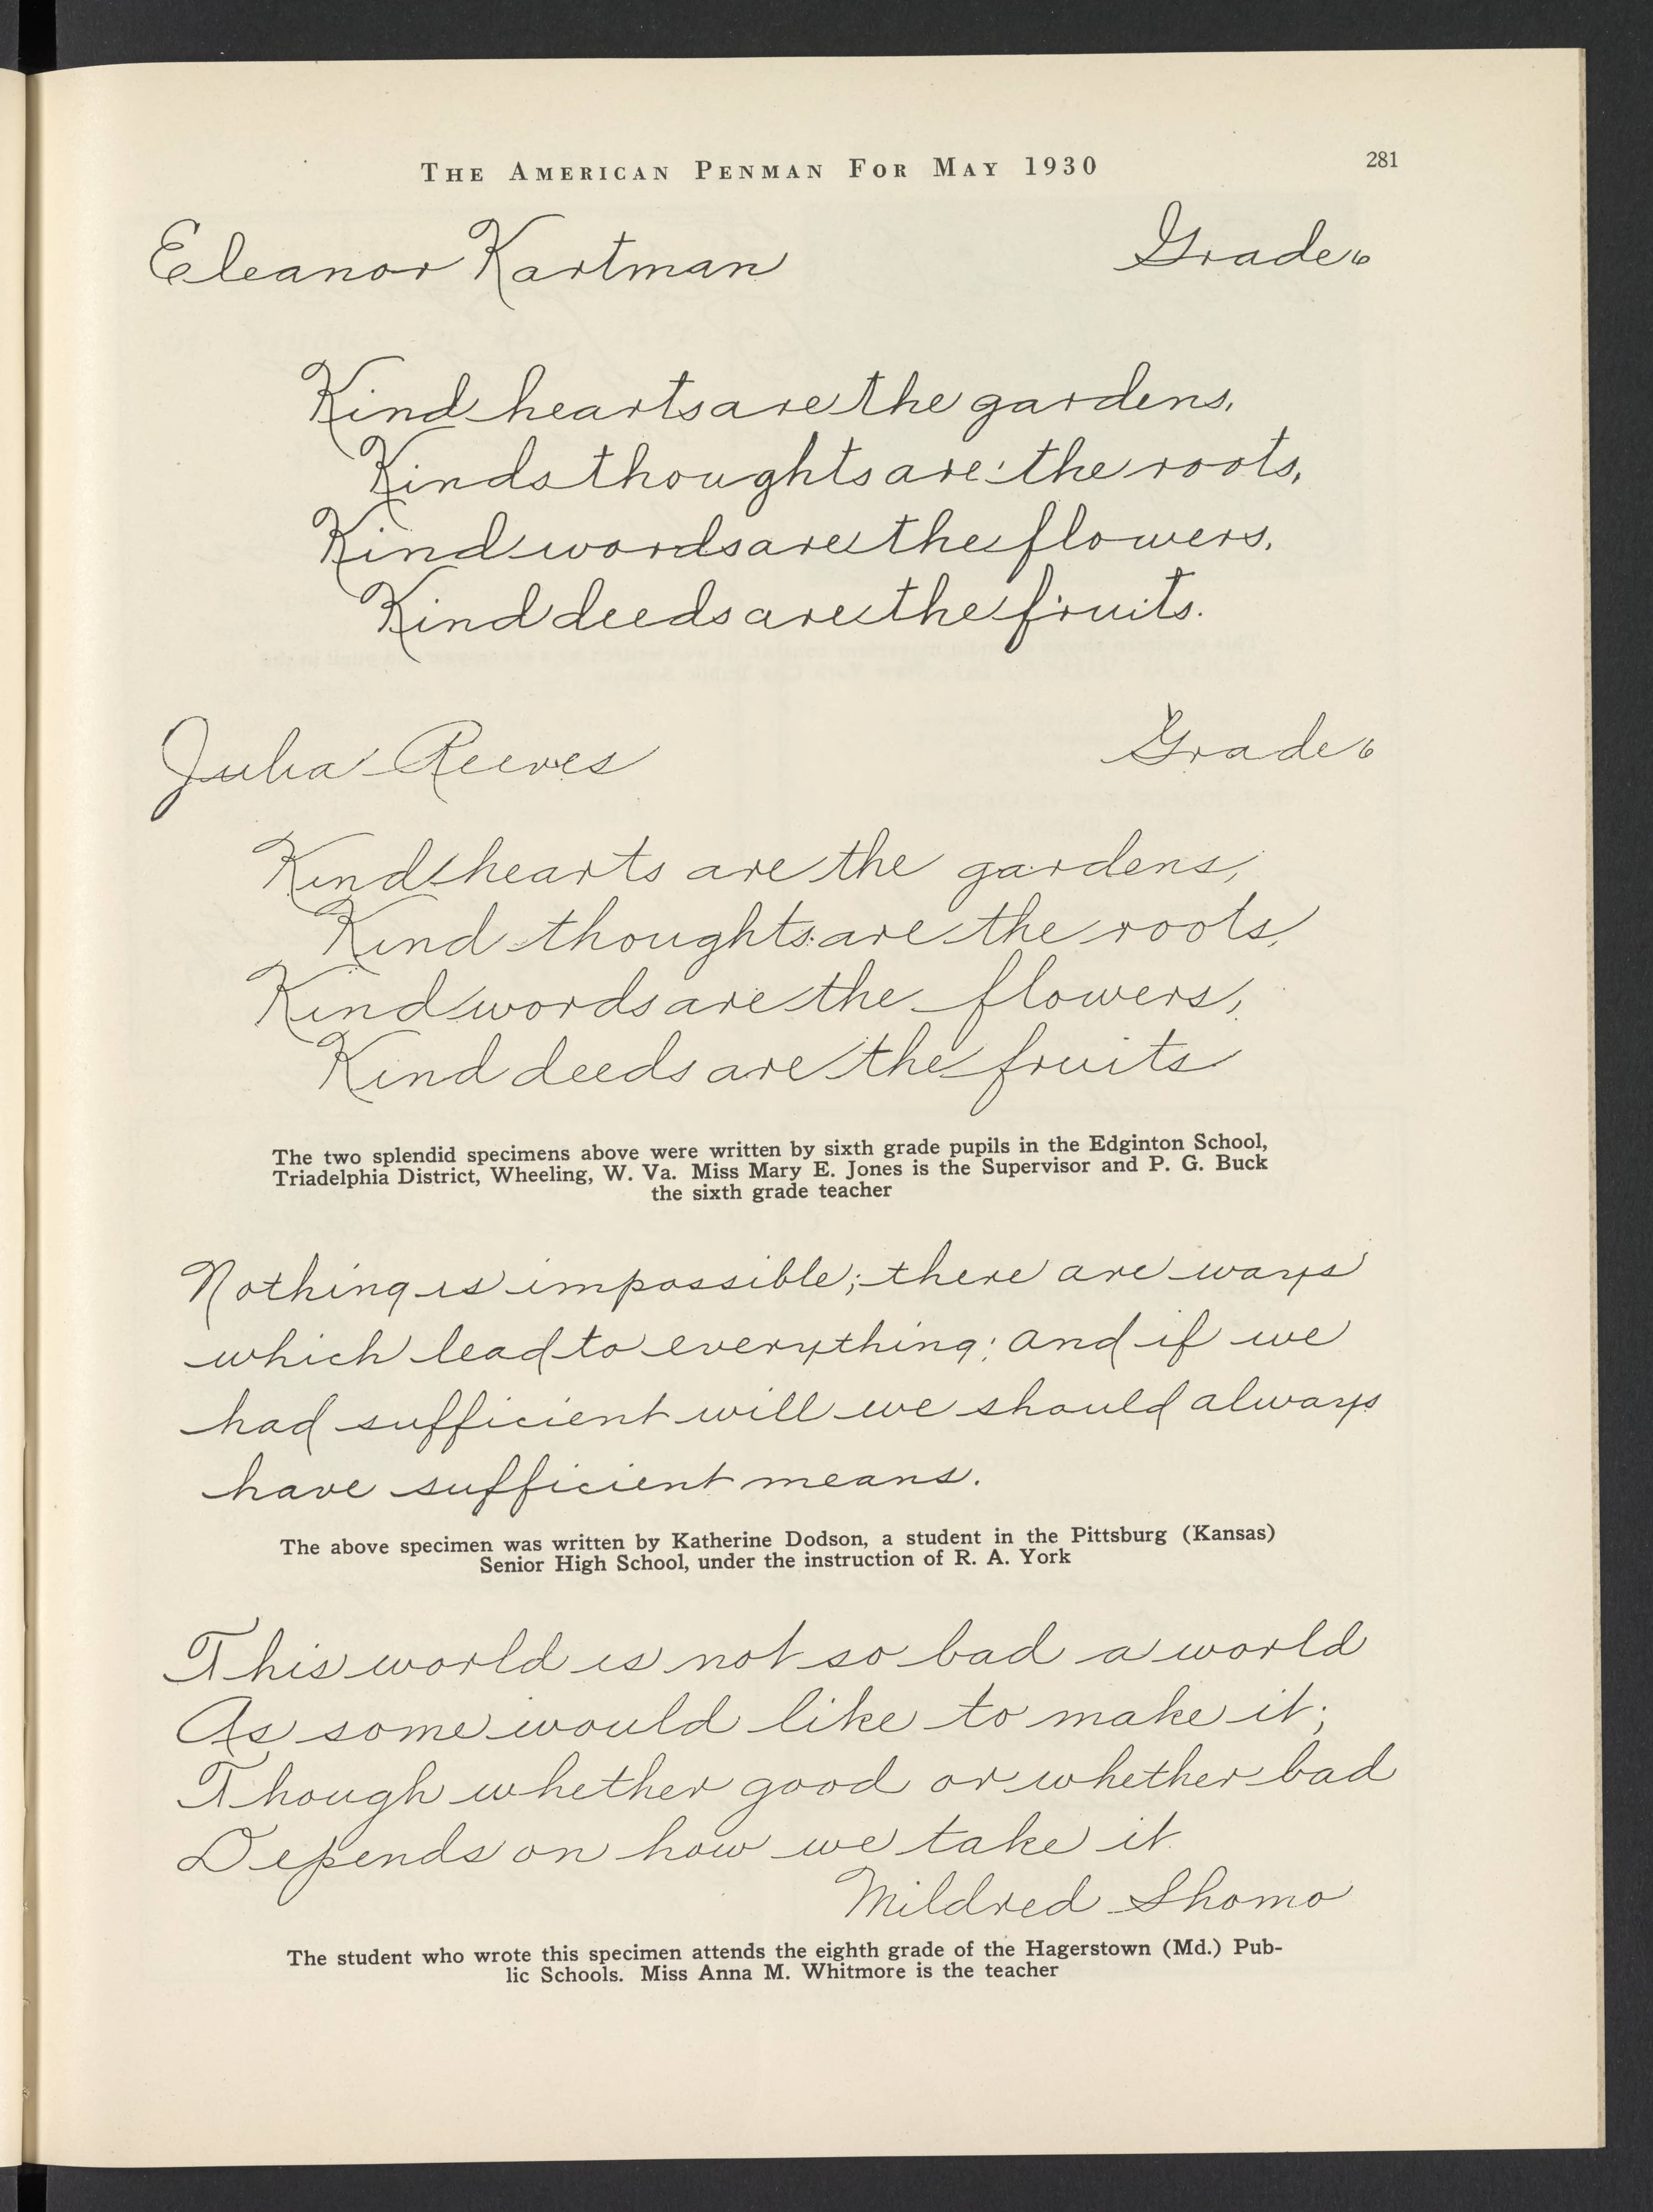 THE AMERICAN PENMAN FOR MAY 1930
281
Eleanor Kartman Grade 6
Kind hearts are the gardens,
Kinds thoughts are the roots,
Kind words are the flowers,
Kind deeds are the fruits.
Julia Reeves Grade 6
Kind hearts are the gardens,
Kind thoughts are the roots,
Kind words are the flowers,
Kind deeds are the fruits
The two splendid specimens above were written by sixth grade pupils in the Edginton School,
Triadelphia District, Wheeling, W. Va. Miss Mary E. Jones is the Supervisor and P. G. Buck
the sixth grade teacher
Nothing is impossible; there are ways
which lead to everything; and if we
had sufficient will we should always
have sufficient means.
The above specimen was written by Katherine Dodson, a student in the Pittsburg (Kansas)
Senior High School, under the instruction of R. A. York
This world is not so bad a world
As some would like to make it;
Though whether good or whether bad
Depends on how we take it.
Mildred Shomo
The student who wrote this specimen attends the eighth grade of the Hagerstown (Md.) Pub-
lic Schools. Miss Anna M. Whitmore is the teacher